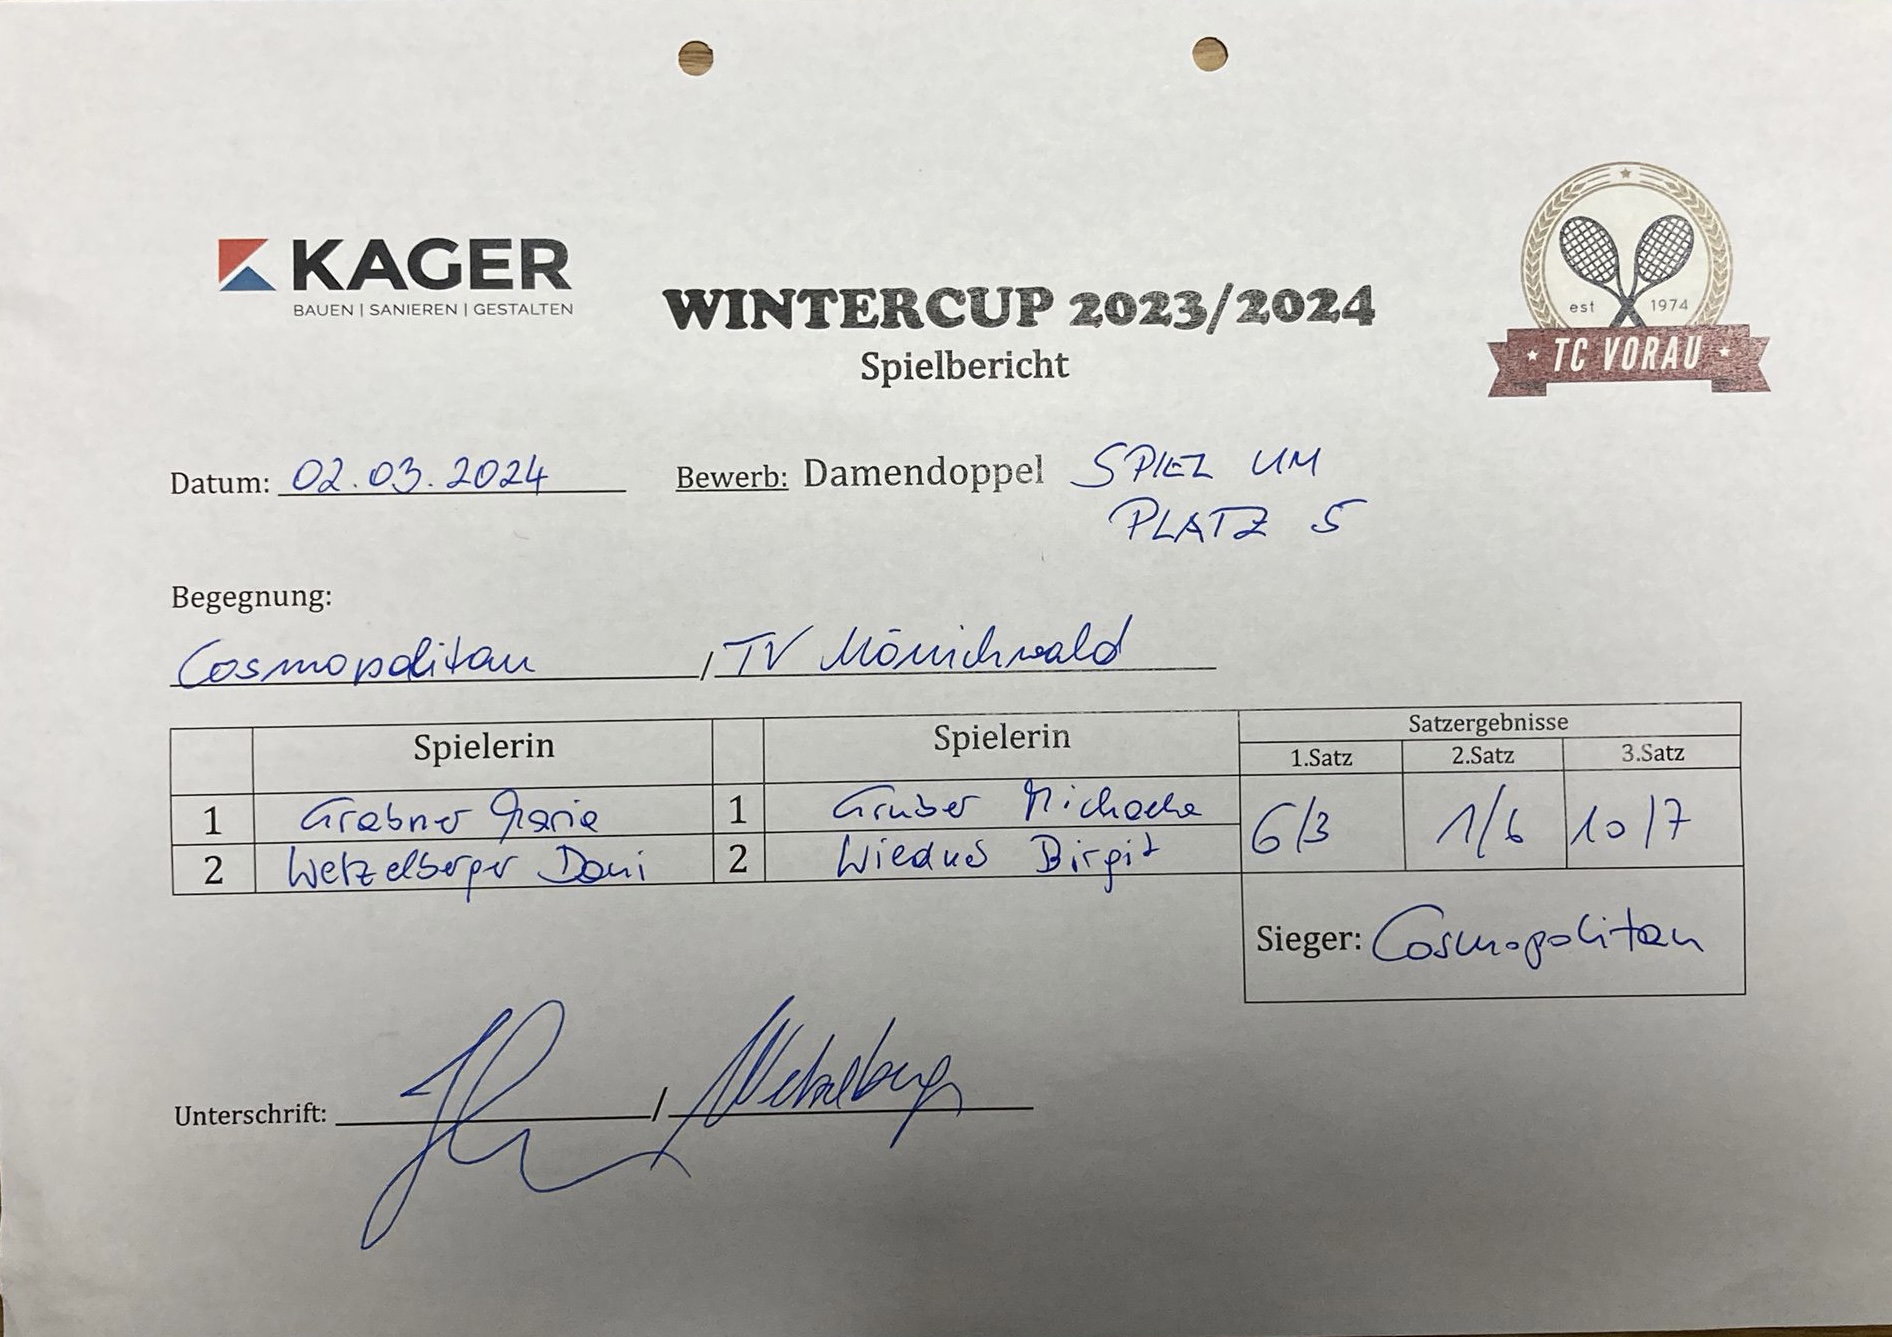 KAGER
BAUEN | SANIEREN | GESTALTEN
WINTERCUP 2023/2024
Spielbericht
est 1974
★ TC VORAU ★
Datum: 02.03.2024 Bewerb: Damendoppel SPIEL UM
PLATZ 5
Begegnung:
Cosmopolitan / TV Mönichwald
Spielerin Spielerin Satzergebnisse
1.Satz 2.Satz 3.Satz
1 Grabner Maria 1 Gruber Michaela 6/3 1/6 10/7
2 Wetzelberger Dani 2 Birgit
Sieger: Cosmopolitan
Unterschrift: / Wetzelberger